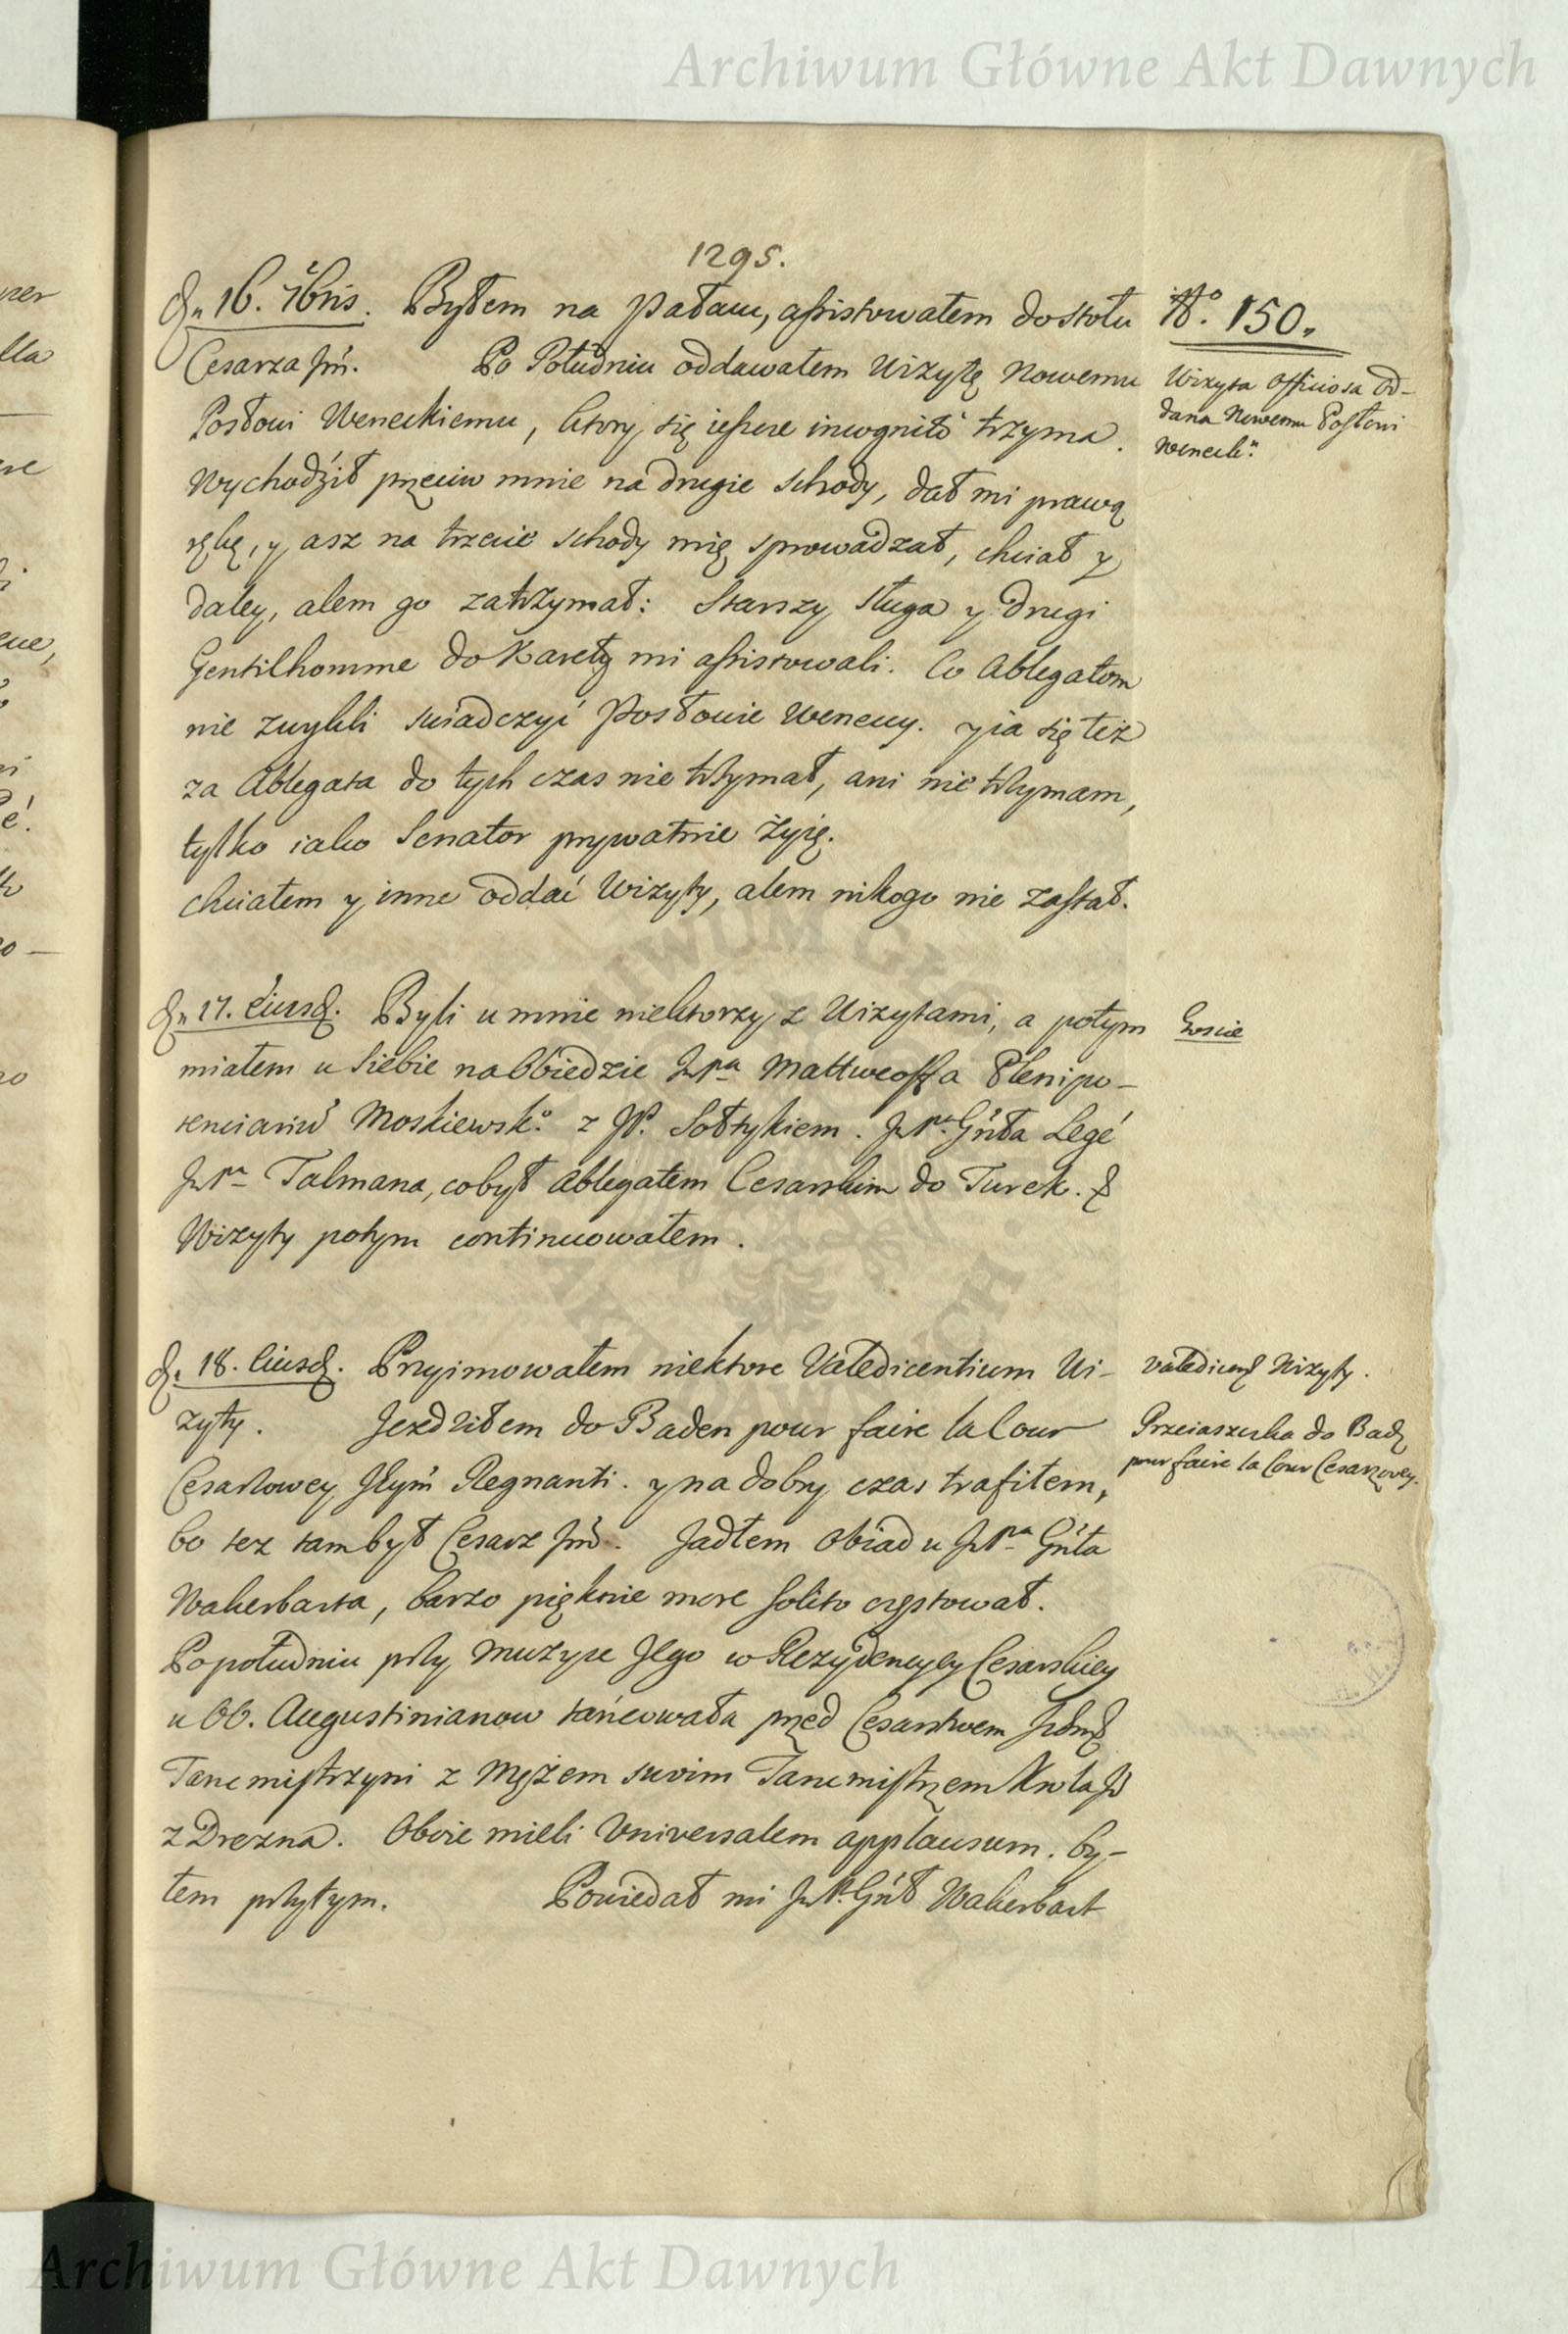 Archiwum Główne Akt Dawnych
1295.
Dn 16. 7bris. Byłem na Pałacu, assistowałem do stołu
Cesarza Jmć. Po Południu oddawałem Wizytę Nowemu
Posłowi Weneckiemu, ktory się ieszcze incognitò trzyma.
Wychodźił przeciw mnie na drugie schody, dał mi prawą
rękę, y asz na trzecie schody mię sprowadzał, chciał y
daley, alem go zatrzymał: Starszy sługa y drugi
Gentilhomme do Karety mi assistowali. Co Ablegatom
nie zwykli swiadczyć Posłowie Weneccy. y ia się też
za Ablegata do tych czas nie trzymał, ani nie trzymam,
tylko iako Senator prywatnie żyię.
chciałem y inne oddać Wizyty, alem nikogo nie zastał.
No. 150.
Wizyta officiosa od-
dana Nowemu Posłowi
Weneck:
Dn 17. Eiusd. Byli u mnie niektorzy z Wizytami, a potym
miałem u siebie na Obiedzie JmPa Mattweoffa Plenipo-
tenciariu Moskiewsk: z JP. Sołtykiem. JmPa Gnła Legé
JmPa Talmana, co był Ablegatem Cesarskim do Turek. &
Wizyty potym continuowałem.
Goscie
Dn 18. Eiusd. Przyimowałem niektore Valedicentium Wi-
zyty. Jezdziłem do Baden pour faire la Cour
Cesarzowey Jeym Regnanti. y na dobry czas trafiłem,
bo tez tam był Cesarz Jmć. Jadłem Obiad u JmPa Gnła
Wakerbarta, barzo pięknie more solito częstował.
Popołudniu przy muzyce Jego w Rezydencyey Cesarskiey
u OO. Augustinianow tańcowała przed Cesarstwem Ichmć
Tancmistrzyni z Mężem swoim Tancmistrzem Krola J
z Drezna. Oboie mieli Universalem applausum. by-
łem przytym. Powiedał mi JmP. Gnł Wakerbart
Valedicend Wizyty.
Przeiaszczka do Bad
pour faire la Cour Cesarzowey.
Archiwum Główne Akt Dawnych